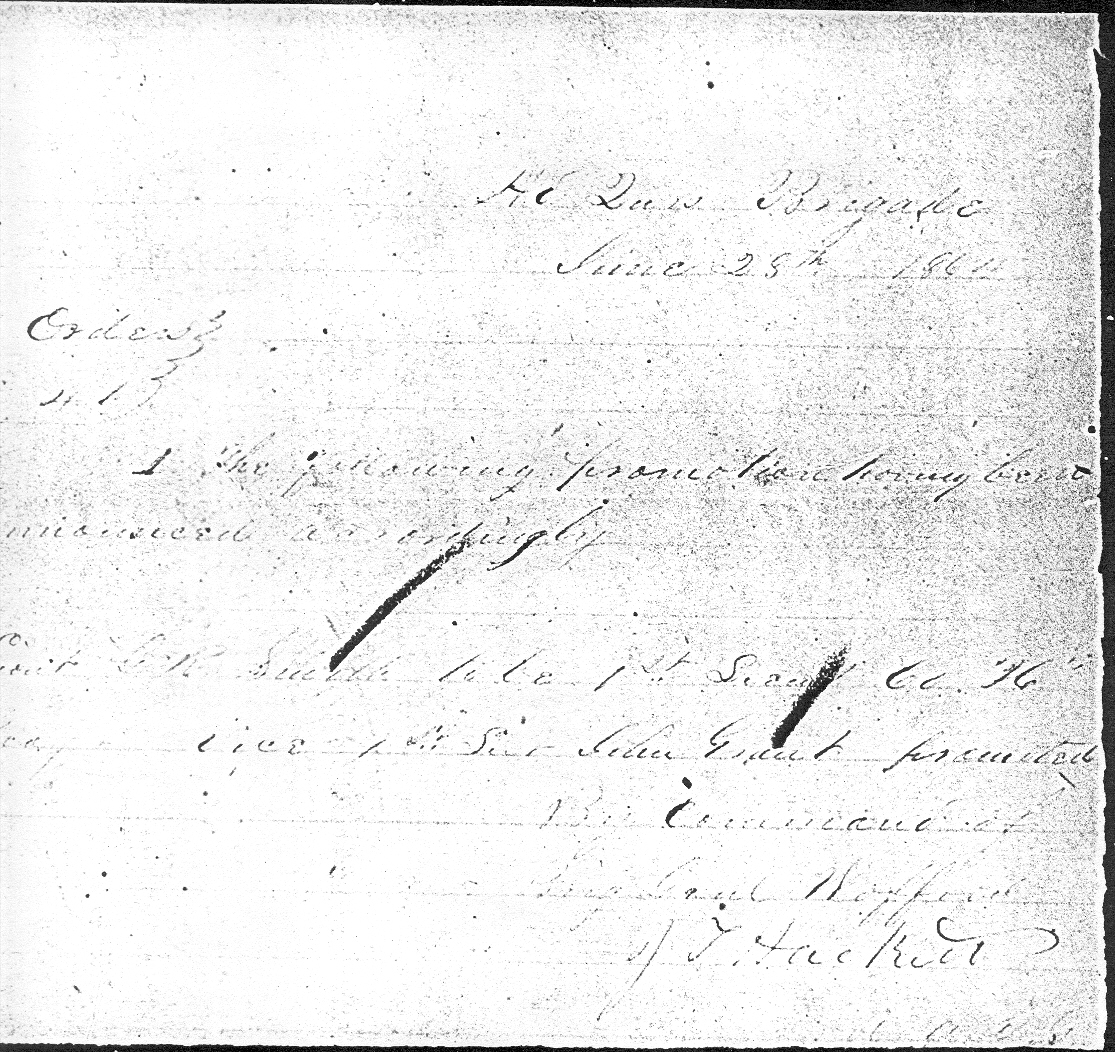 Hd Qurs Brigade
June 28th 1864
Orders
I The following promotion having been
nnounced accordingly
G R Smith to be 1st Sergt Co "H"
vice 1st Ser John Grant promoted
By Command of
Brig Genl Wofford
J T Hackett